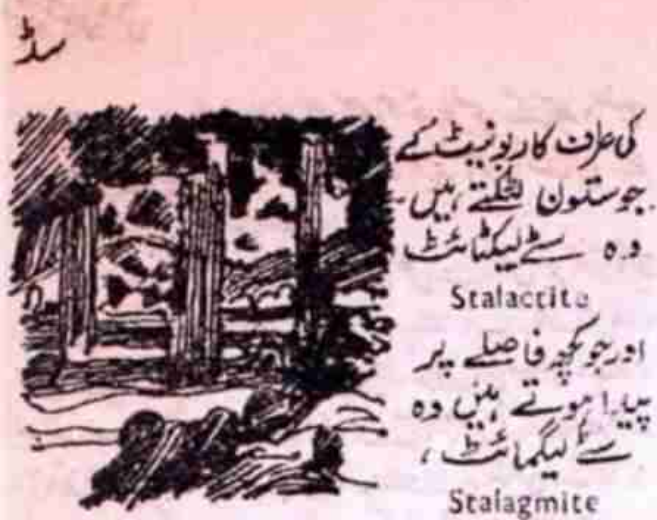 سڈ
کی طرف کاربونیٹ کے
جو ستون لٹکتے ہیں۔
وہ سٹے لیکٹائٹ
Stalactite
اور جو کچھ فاصلے پر
پیدا ہوتے ہیں وہ
سٹے لیگمائٹ،
Stalagmite